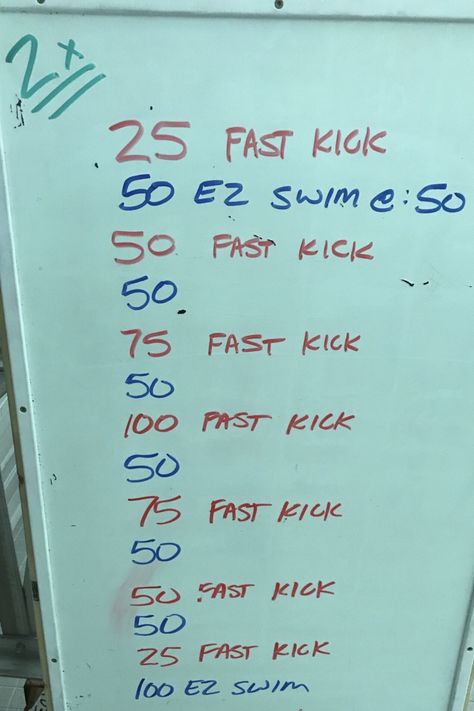 2x
25 FAST KICK
50 EZ SWIM @ :50
50 FAST KICK
50
75 FAST KICK
50
100 FAST KICK
50
75 FAST KICK
50
50 FAST KICK
50
25 FAST KICK
100 EZ SWIM